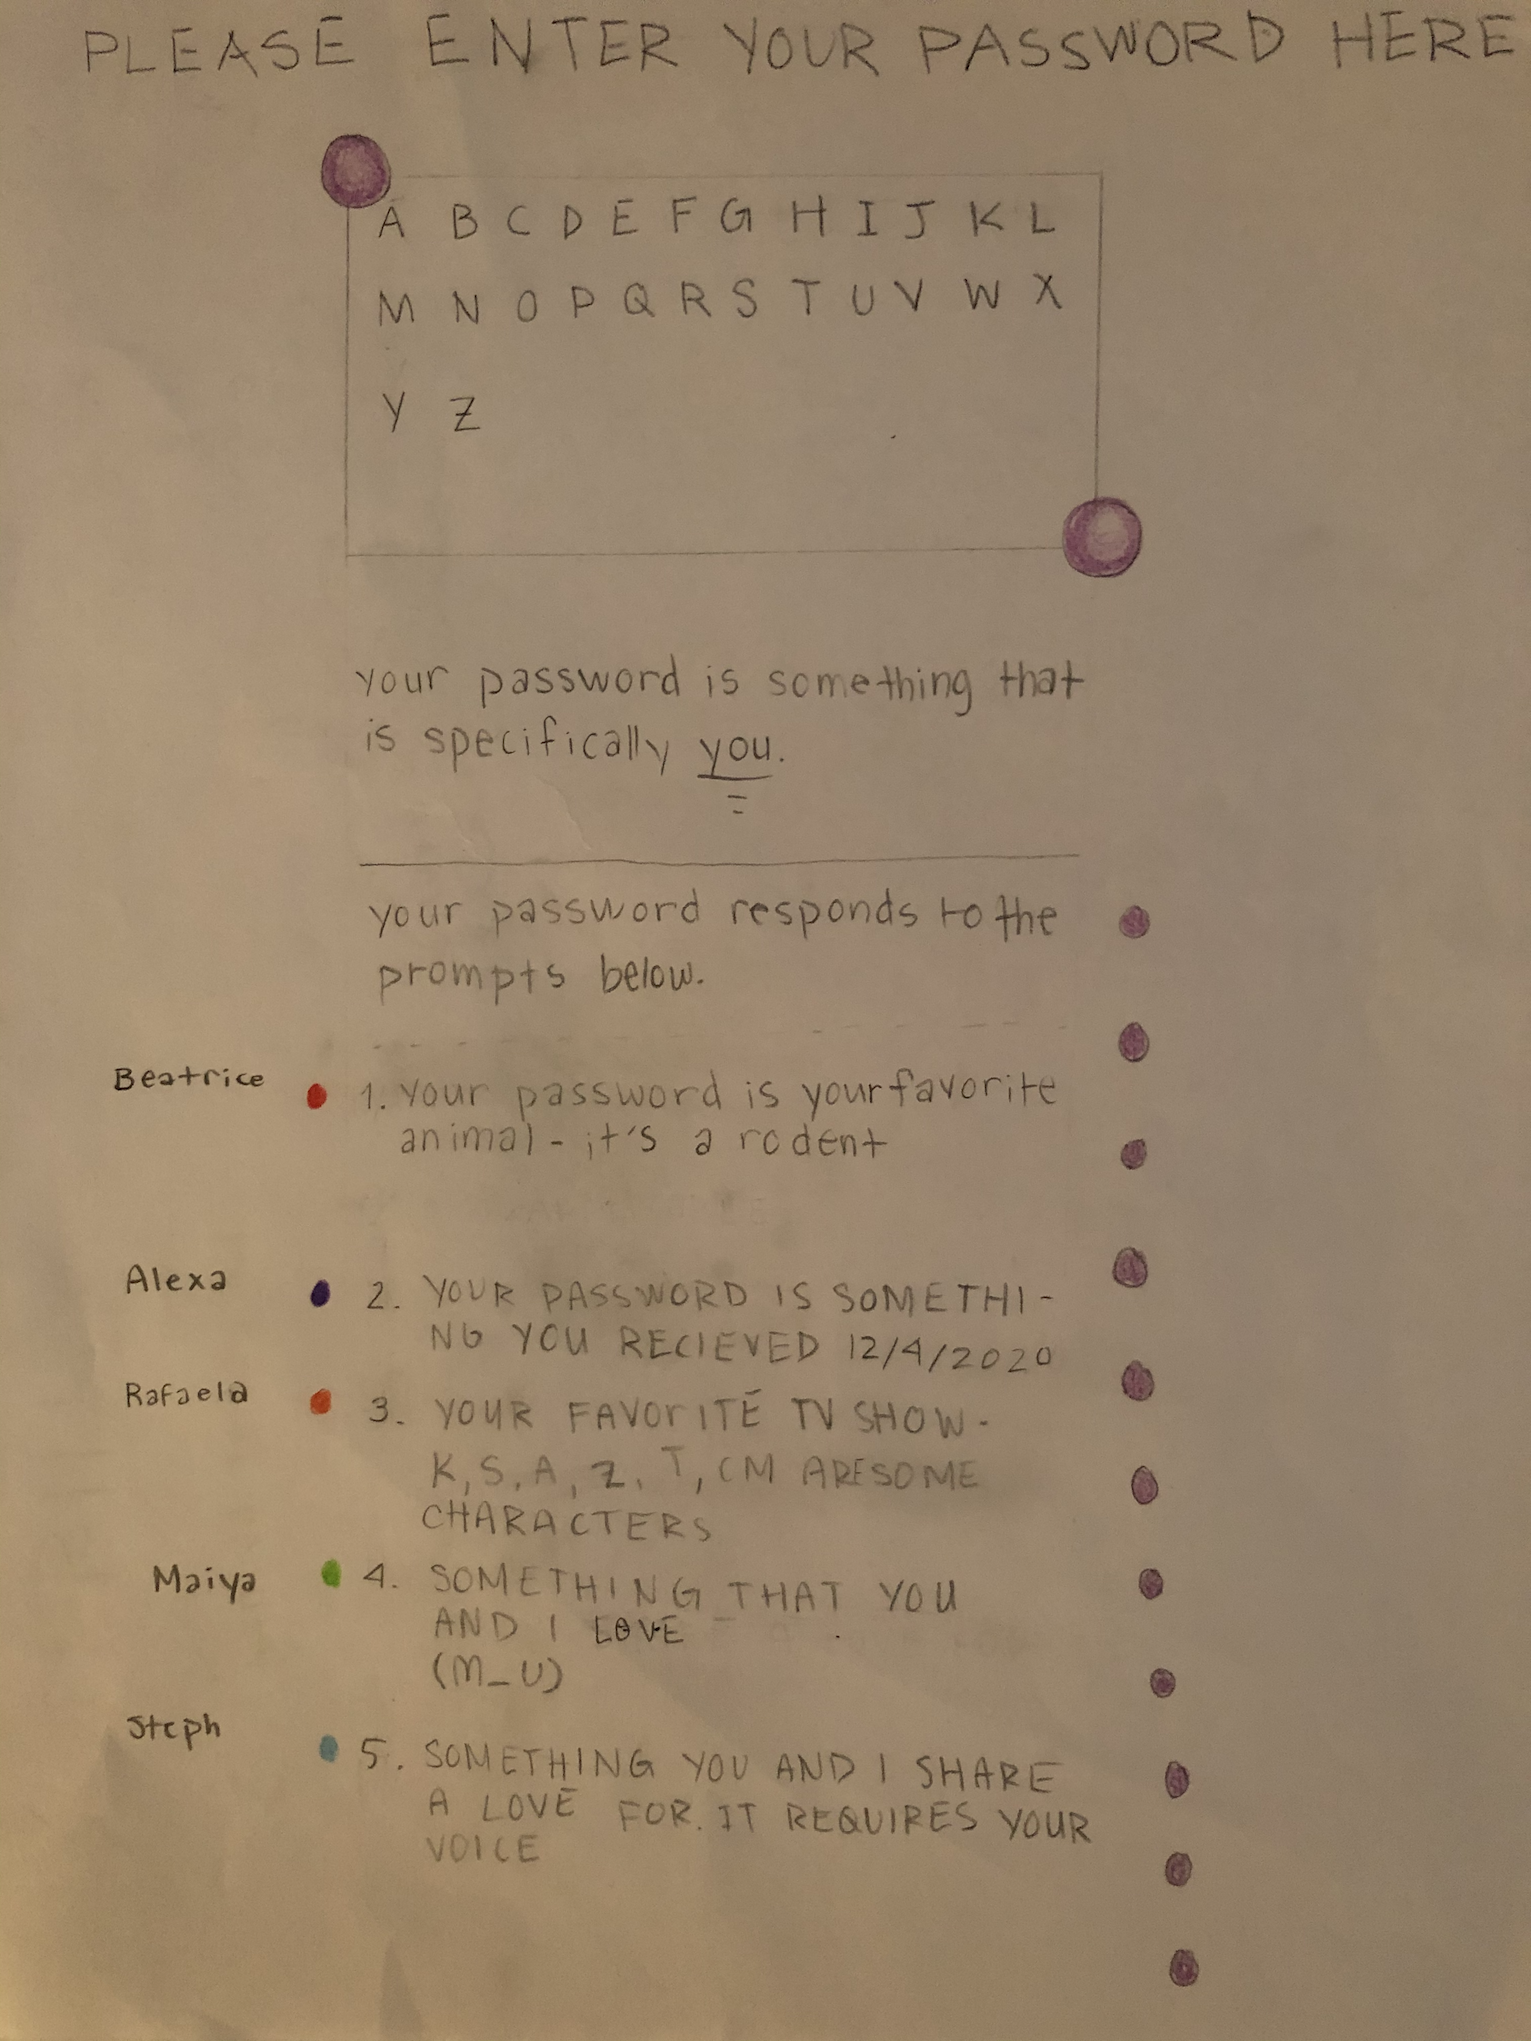 PLEASE ENTER YOUR PASSWORD HERE
A B C D E F G H I J K L
M N O P Q R S T U V W X
Y Z
your password is something that
is specifically you.
your password responds to the
prompts below.
Beatrice 1. Your password is your favorite
animal - it's a rodent
Alexa 2. YOUR PASSWORD IS SOMETHI-
NG YOU RECIEVED 12/4/2020
Rafaela 3. YOUR FAVORITE TV SHOW -
K, S, A, Z, T, CM ARE SOME
CHARACTERS
Maiya 4. SOMETHING THAT YOU
AND I LOVE
(M_U)
Steph 5. SOMETHING YOU AND I SHARE
A LOVE FOR. IT REQUIRES YOUR
VOICE